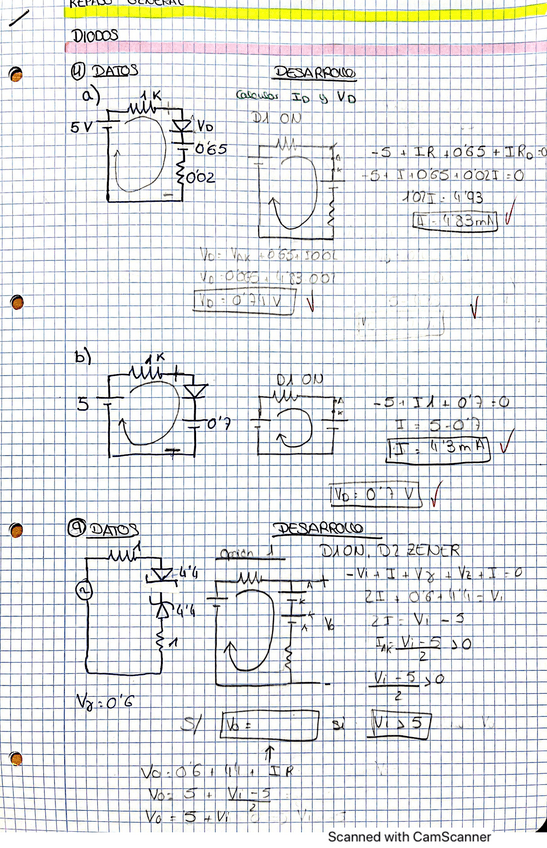 REPASO GENERAL
DIODOS
4) DATOS
DESARROLLO
a)
1K
5V
VD
0'65
0'02
Calcular ID y VD
D1 ON
-5 + IR + 0'65 + IRD = 0
-5 + I + 0'65 + 0'02I = 0
1'02I = 4'93
I = 4'83mA
VD = VAK + 0'65 + I0'02
VD = 0'74 V
b)
1K
5
0'7
D1 ON
-5 + I1 + 0'7 = 0
I = 5 - 0'7
I = 4'3mA
VD = 0'7 V
9) DATOS
DESARROLLO
1
4'4
4'4
1
Vγ = 0'6
opción 1
D1 ON, D2 ZENER
A
K
K
A
Vo
-Vi + I + Vγ + Vz + I = 0
2I + 0'6 + 4'4 = Vi
2I = Vi - 5
Vi - 5 > 0
2
Vi - 5 > 0
2
S/
Vo =
si
Vi > 5
Vo = 0'6 + 4'4 + IR
Vo = 5 + Vi - 5
2
Vo = 5 + Vi
Scanned with CamScanner